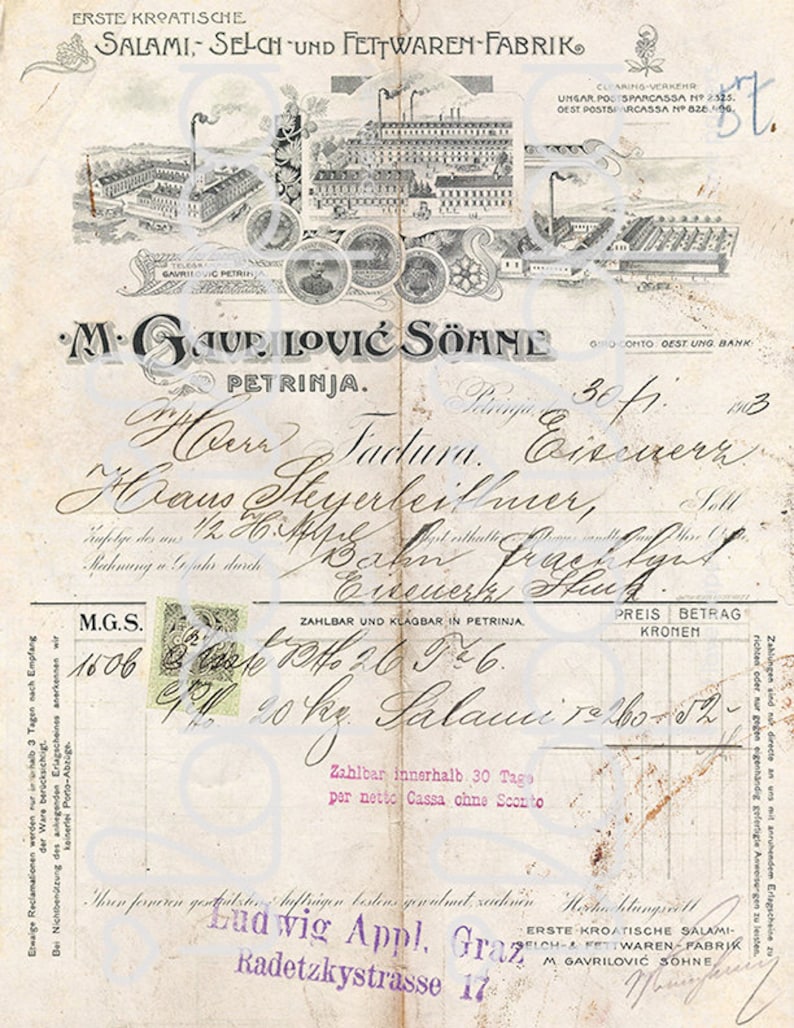 ERSTE KROATISCHE
SALAMI,- SELCH- UND FETTWAREN-FABRIK
CLEARING-VERKEHR:
UNGAR. POSTSPARCASSA Nº 2325.
OEST. POSTSPARCASSA Nº 828.406.
57.
TELEGRAMME:
GAVRILOVIĆ PETRINJA.
·M· GAVRILOVIĆ SÖHNE
GIRO-CONTO: OEST. UNG. BANK.
PETRINJA.
Petrinja, 30/1. 1903
Herr Factura. Eisenerz
Hans Steyerleithner, Soll
Zufolge des uns
Rechnung u. Gefahr durch Bahn Frachtgut
Eisenerz
M.G.S. ZAHLBAR UND KLAGBAR IN PETRINJA. PREIS BETRAG
KRONEN
1506 Kiste Btto 26 Ta 6.
20 kg. Salami 260 52-
Zahlbar innerhalb 30 Tage
per netto Cassa ohne Sconto
Etwaige Reclamationen werden nur innerhalb 3 Tagen nach Empfang
der Ware berücksichtigt.
Bei Nichtbenützung des anliegenden Erlagscheines anerkennen wir
keinerlei Porto-Abzüge.
Zahlungen sind nur directe an uns mit anruhendem Erlagscheine zu
richten oder nur gegen eigenhändig gefertigte Anweisungen zu leisten.
Ihren ferneren geschätzten Aufträgen bestens gewidmet, zeichnen Hochachtungsvoll
Ludwig Appl, Graz
Radetzkystrasse 17
ERSTE KROATISCHE SALAMI-
SELCH- & FETTWAREN-FABRIK
M GAVRILOVIĆ SÖHNE